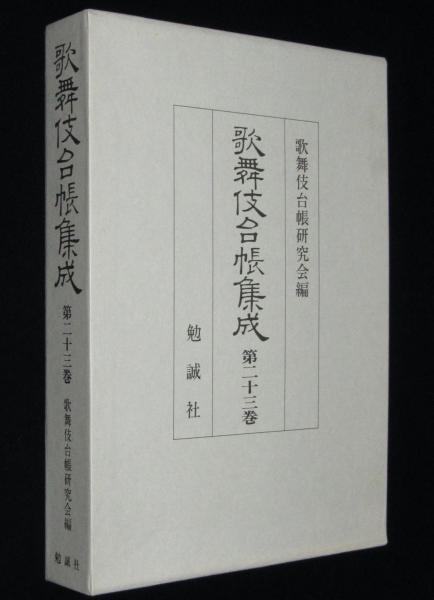 歌舞伎台帳研究会編
歌舞伎台帳集成 第二十三巻
勉誠社
歌舞伎台帳集成 第二十三巻 歌舞伎台帳研究会編 勉誠社